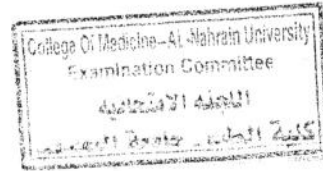 College Of Medicine-AL-Nahrain University
Examination Committee
اللجنة الامتحانية
كلية الطب - جامعة